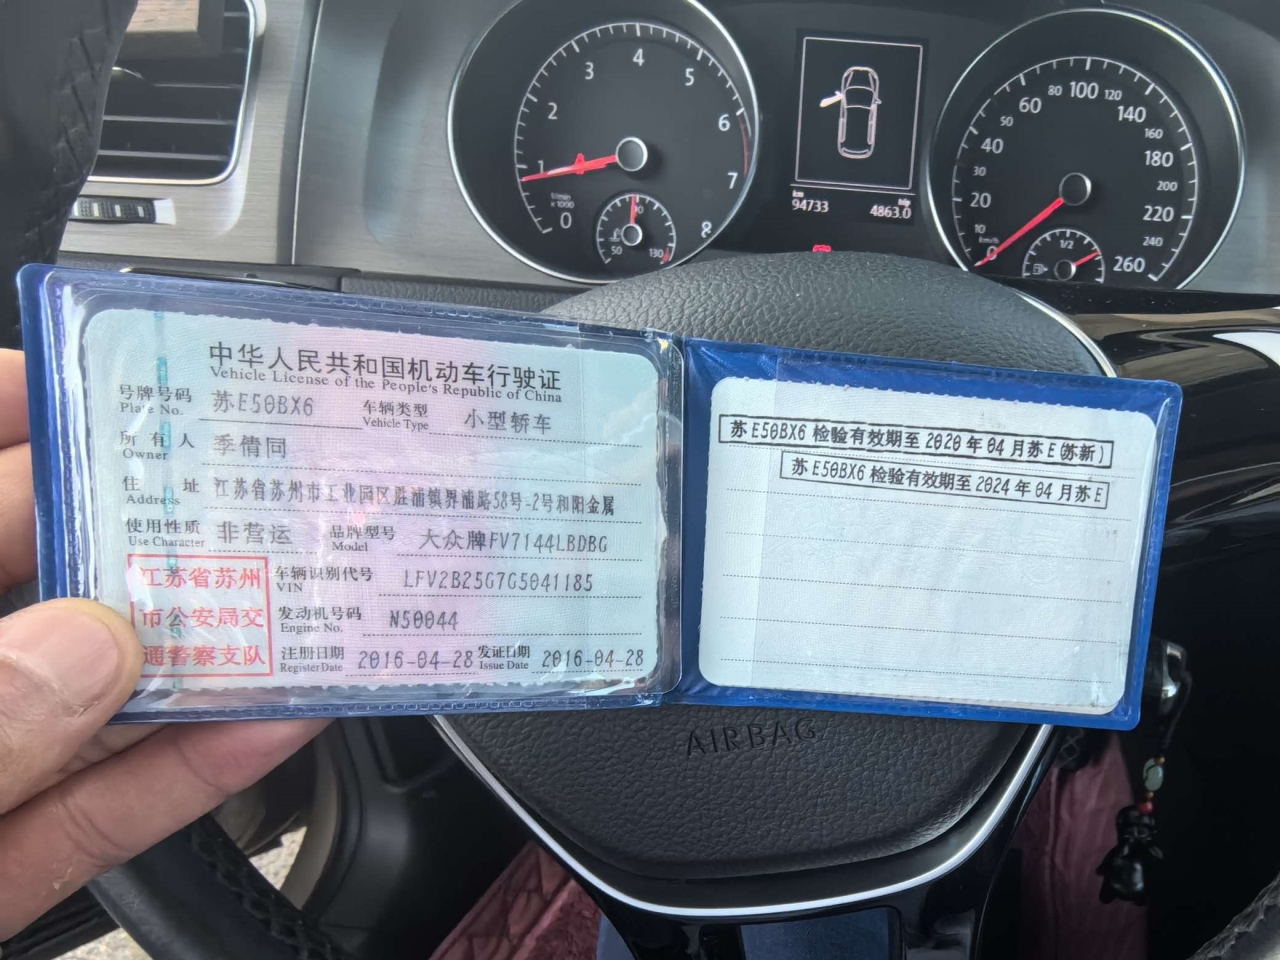 1
2
3
4
5
6
7
8
0
1/min
x 1000
50
90
130
km
94733
trip
4863.0
0
10
20
30
40
50
60
80
100
120
140
160
180
200
220
240
260
km/h
1/2
中华人民共和国机动车行驶证
Vehicle License of the People's Republic of China
号牌号码 苏E50BX6 车辆类型 小型轿车
Plate No. Vehicle Type
所有人 季倩同
Owner
住址 江苏省苏州市工业园区胜浦镇界浦路58号-2号和阳金属
Address
使用性质 非营运 品牌型号 大众牌FV7144LBDBG
Use Character Model
江苏省苏州
市公安局交
通警察支队
车辆识别代号 LFV2B25G7G5041185
VIN
发动机号码 N50044
Engine No.
注册日期 2016-04-28 发证日期 2016-04-28
Register Date Issue Date
苏E50BX6 检验有效期至 2020 年 04 月苏 E(苏新)
苏E50BX6 检验有效期至 2024 年 04 月苏 E
AIRBAG